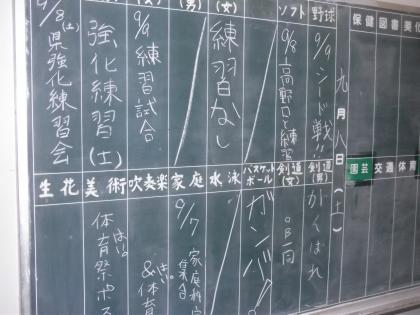 保健図書美化
九月八日(土)
園芸 交通 体育
野球
9/9 シード戦!!
ソフト
9/8 高野口と練習
(女)
練習なし
(男)
9/9 練習試合
強化練習(土)
9/8(土) 県強化練習会
剣道(男)
がくばれ
剣道(女)
OB一同
バスケットボール
ガンバ!
水泳
家庭
9/7 家庭科室集合
吹奏楽
&体育
美術
体育祭ポス
生花